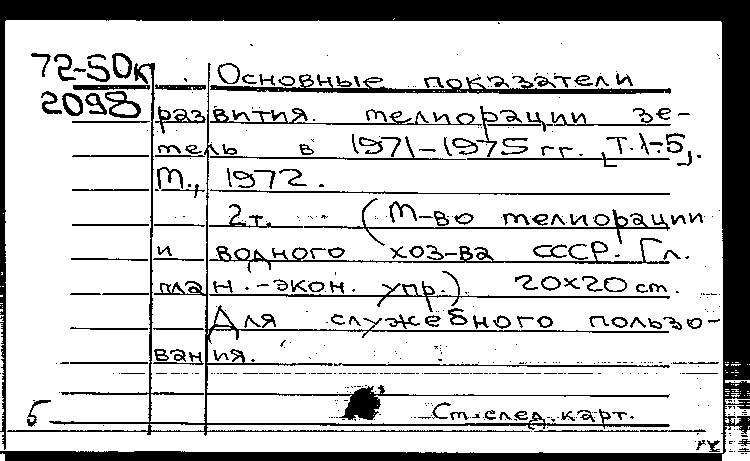 72-50к
2098
Основные показатели
развития мелиорации зе-
мель в 1971-1975 гг. [Т. 1-5].
М., 1972.
2 т. (М-во мелиорации
и водного хоз-ва СССР. Гл.
план.-экон. упр.). 20х20 см.
Для служебного пользо-
вания.
См. след. карт.
б